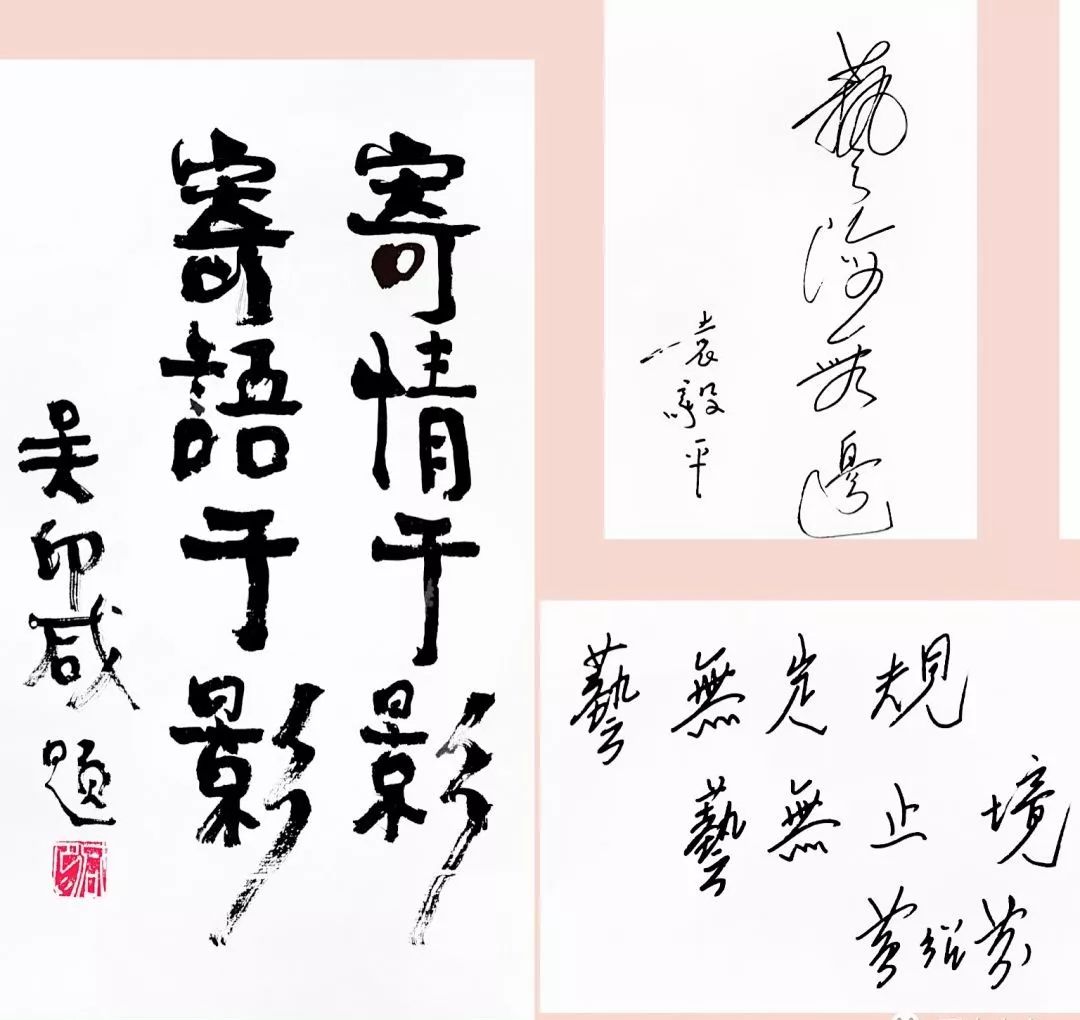 寄情于影
寄語于影
吴印咸 题
藝海無邊
袁毅平
藝無定規
藝無止境
黄绍芬